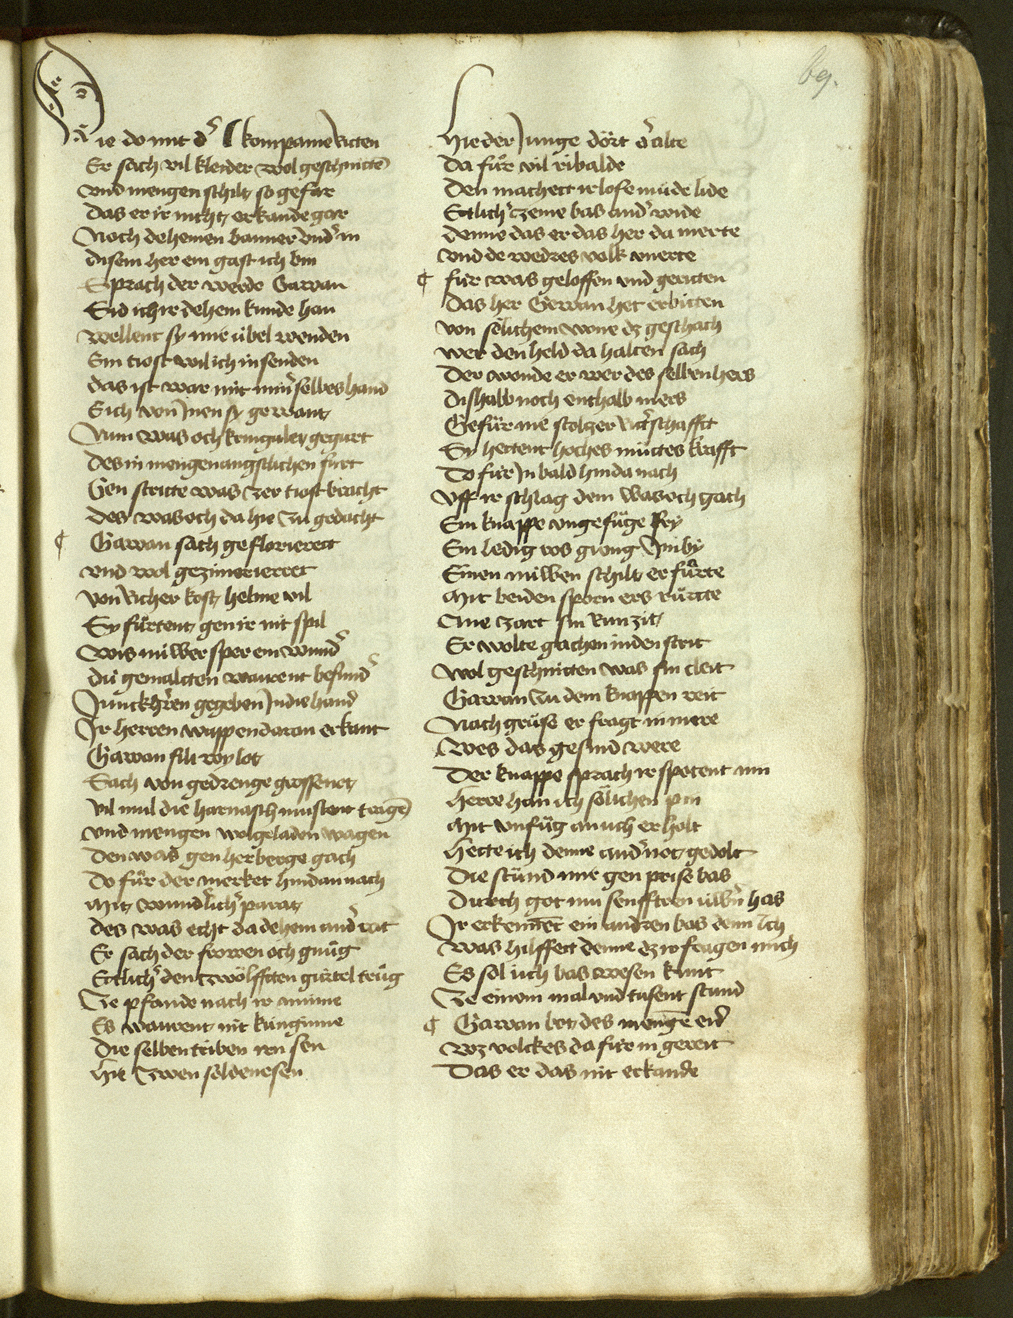 69.
Die do mit der kompanie ritten
Er sach vil kleider wol geschnitten
vnd mengen schilt so gefar
das er ir nicht erkande gar
Noch deheinen banner vnder in
disem her ein gast ich bin
Sprach der werde Gawan
Sid ich ir dehein kunde han
wellent sy mir übel wenden
Ein tiost wil ich in senden
das ist war mit min selbes hand
E ich von Inen sy gewant
Nun was och kringuley gegurt
des in mengen angstlichen furt
Gen strite was zer tiost bracht
des was och da hin zu gedacht
¶ Gawan sach geflorieret
vnd wol gezimierieret
von richer kost helme vil
Sy fůrtent gen ir nit spil
wis niwer sper ein wunder
dü gemalten warent besunder
Junckhren gegeben In die hand
Ir herren wappen daran erkant
Gawan fili roy lot
Sach von gedrenge grossen not
vil mul die harnasch mustent tragen
vnd mengen wolgeladen wagen
den was gen herberge gach
Do fůr der merket hindan nach
Mit wunderlicher parat
des was echt da dehein ander rat
Er sach der frowen och gnůg
Ettlicher den zwölfften gürtel trůg
Ze pfande nach ir minne
Es warent nit künginne
Die selben triben ren sen
Hit zwen soldenersen
Hie der Junge dört der alte
Da fůr vil ribalde
Den machett ir lofe müde lide
Ettlicher czeme bas ander wide
denne das er das her da merte
vnd de wedres volk vnerte
¶ fur was geloffen vnd geritten
Das her Gewan het erbitten
von sölichem wone dz geschach
wer den held da halten sach
Der wonde er wer des selben hers
dishalb noch enthalb mers
Gefůr nie stolzer ritterschafft
Sy hettent hoches müttes krafft
Do fůr In bald hinda nach
Vff ir schlag dem was och gach
Ein knappe vngefüge frey
Ein ledig ros gieng Im by
Einen niwen schilt er fůrte
Mit beiden sporn ers růrtte
Ane zart sin runzit
Er wolte gachen in den strit
wol geschnitten was sin cleit
Gawan zu dem knappen reit
Nach grüse er fragt in mere
wes das gesind were
Der knappe sprach ir spotent min
Herre han ich sölichen pin
Mit vnfůg an üch erholt
Hette ich denne ander not gedolt
Die stůnd mir gen prise bas
Durch got nu senfftren üwern has
Ir erkennet ein andren bas denn ich
was hilffett denne dz ir fragen mich
Es sol üch bas wesen kunt
Ze einem mal vnd tusent stund
¶ Gawan bot des menge eid
wz volckes da für in gereit
Das er das nit erkande